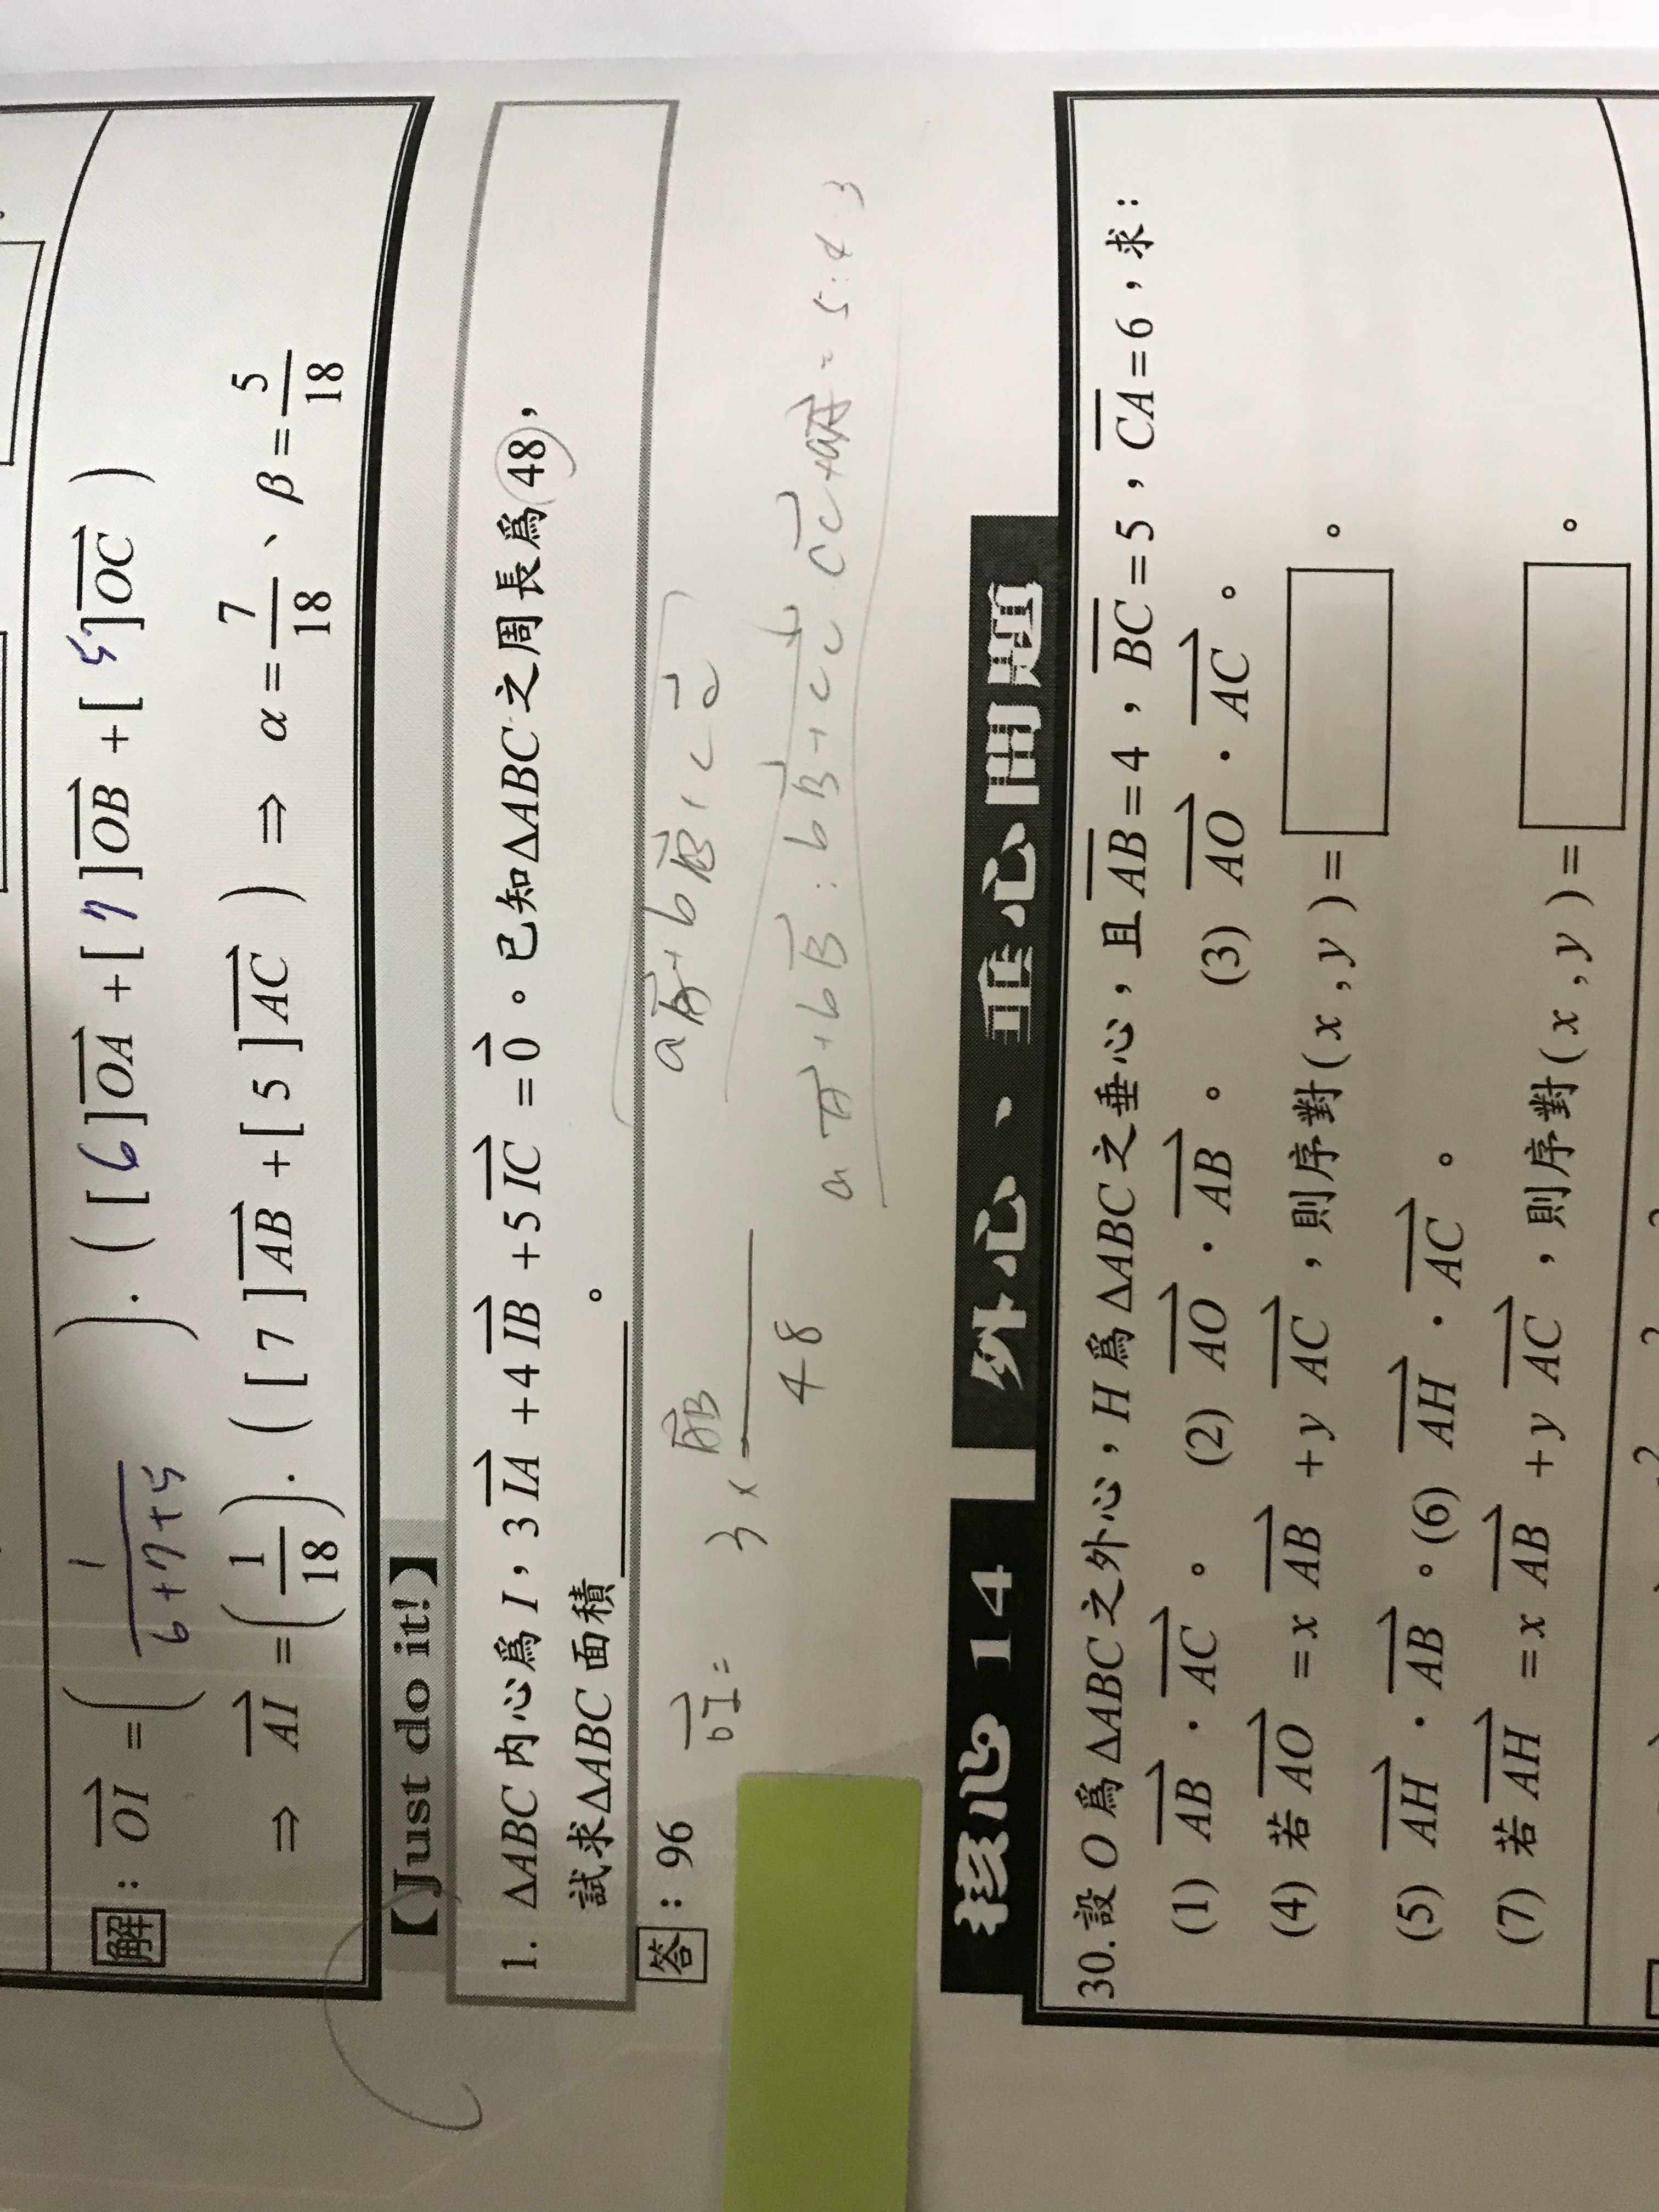 解：OI = ( 1/(6+7+5) ) · ( [ 6 ] OA + [ 7 ] OB + [ 5 ] OC )
⇒ AI = ( 1/18 ) · ( [ 7 ] AB + [ 5 ] AC ) ⇒ α = 7/18、β = 5/18
【Just do it!】
1. ΔABC內心爲 I，3 IA + 4 IB + 5 IC = 0。已知ΔABC之周長爲48，
試求ΔABC面積______。
答：96
OI =
3 × AB
48
核心 14 外心、垂心問題
30. 設 O 爲 ΔABC之外心，H 爲 ΔABC之垂心，且 AB = 4，BC = 5，CA = 6，求：
(1) AB · AC。 (2) AO · AB。 (3) AO · AC。
(4) 若 AO = x AB + y AC，則序對( x , y ) = 。
(5) AH · AB。(6) AH · AC。
(7) 若 AH = x AB + y AC，則序對( x , y ) = 。